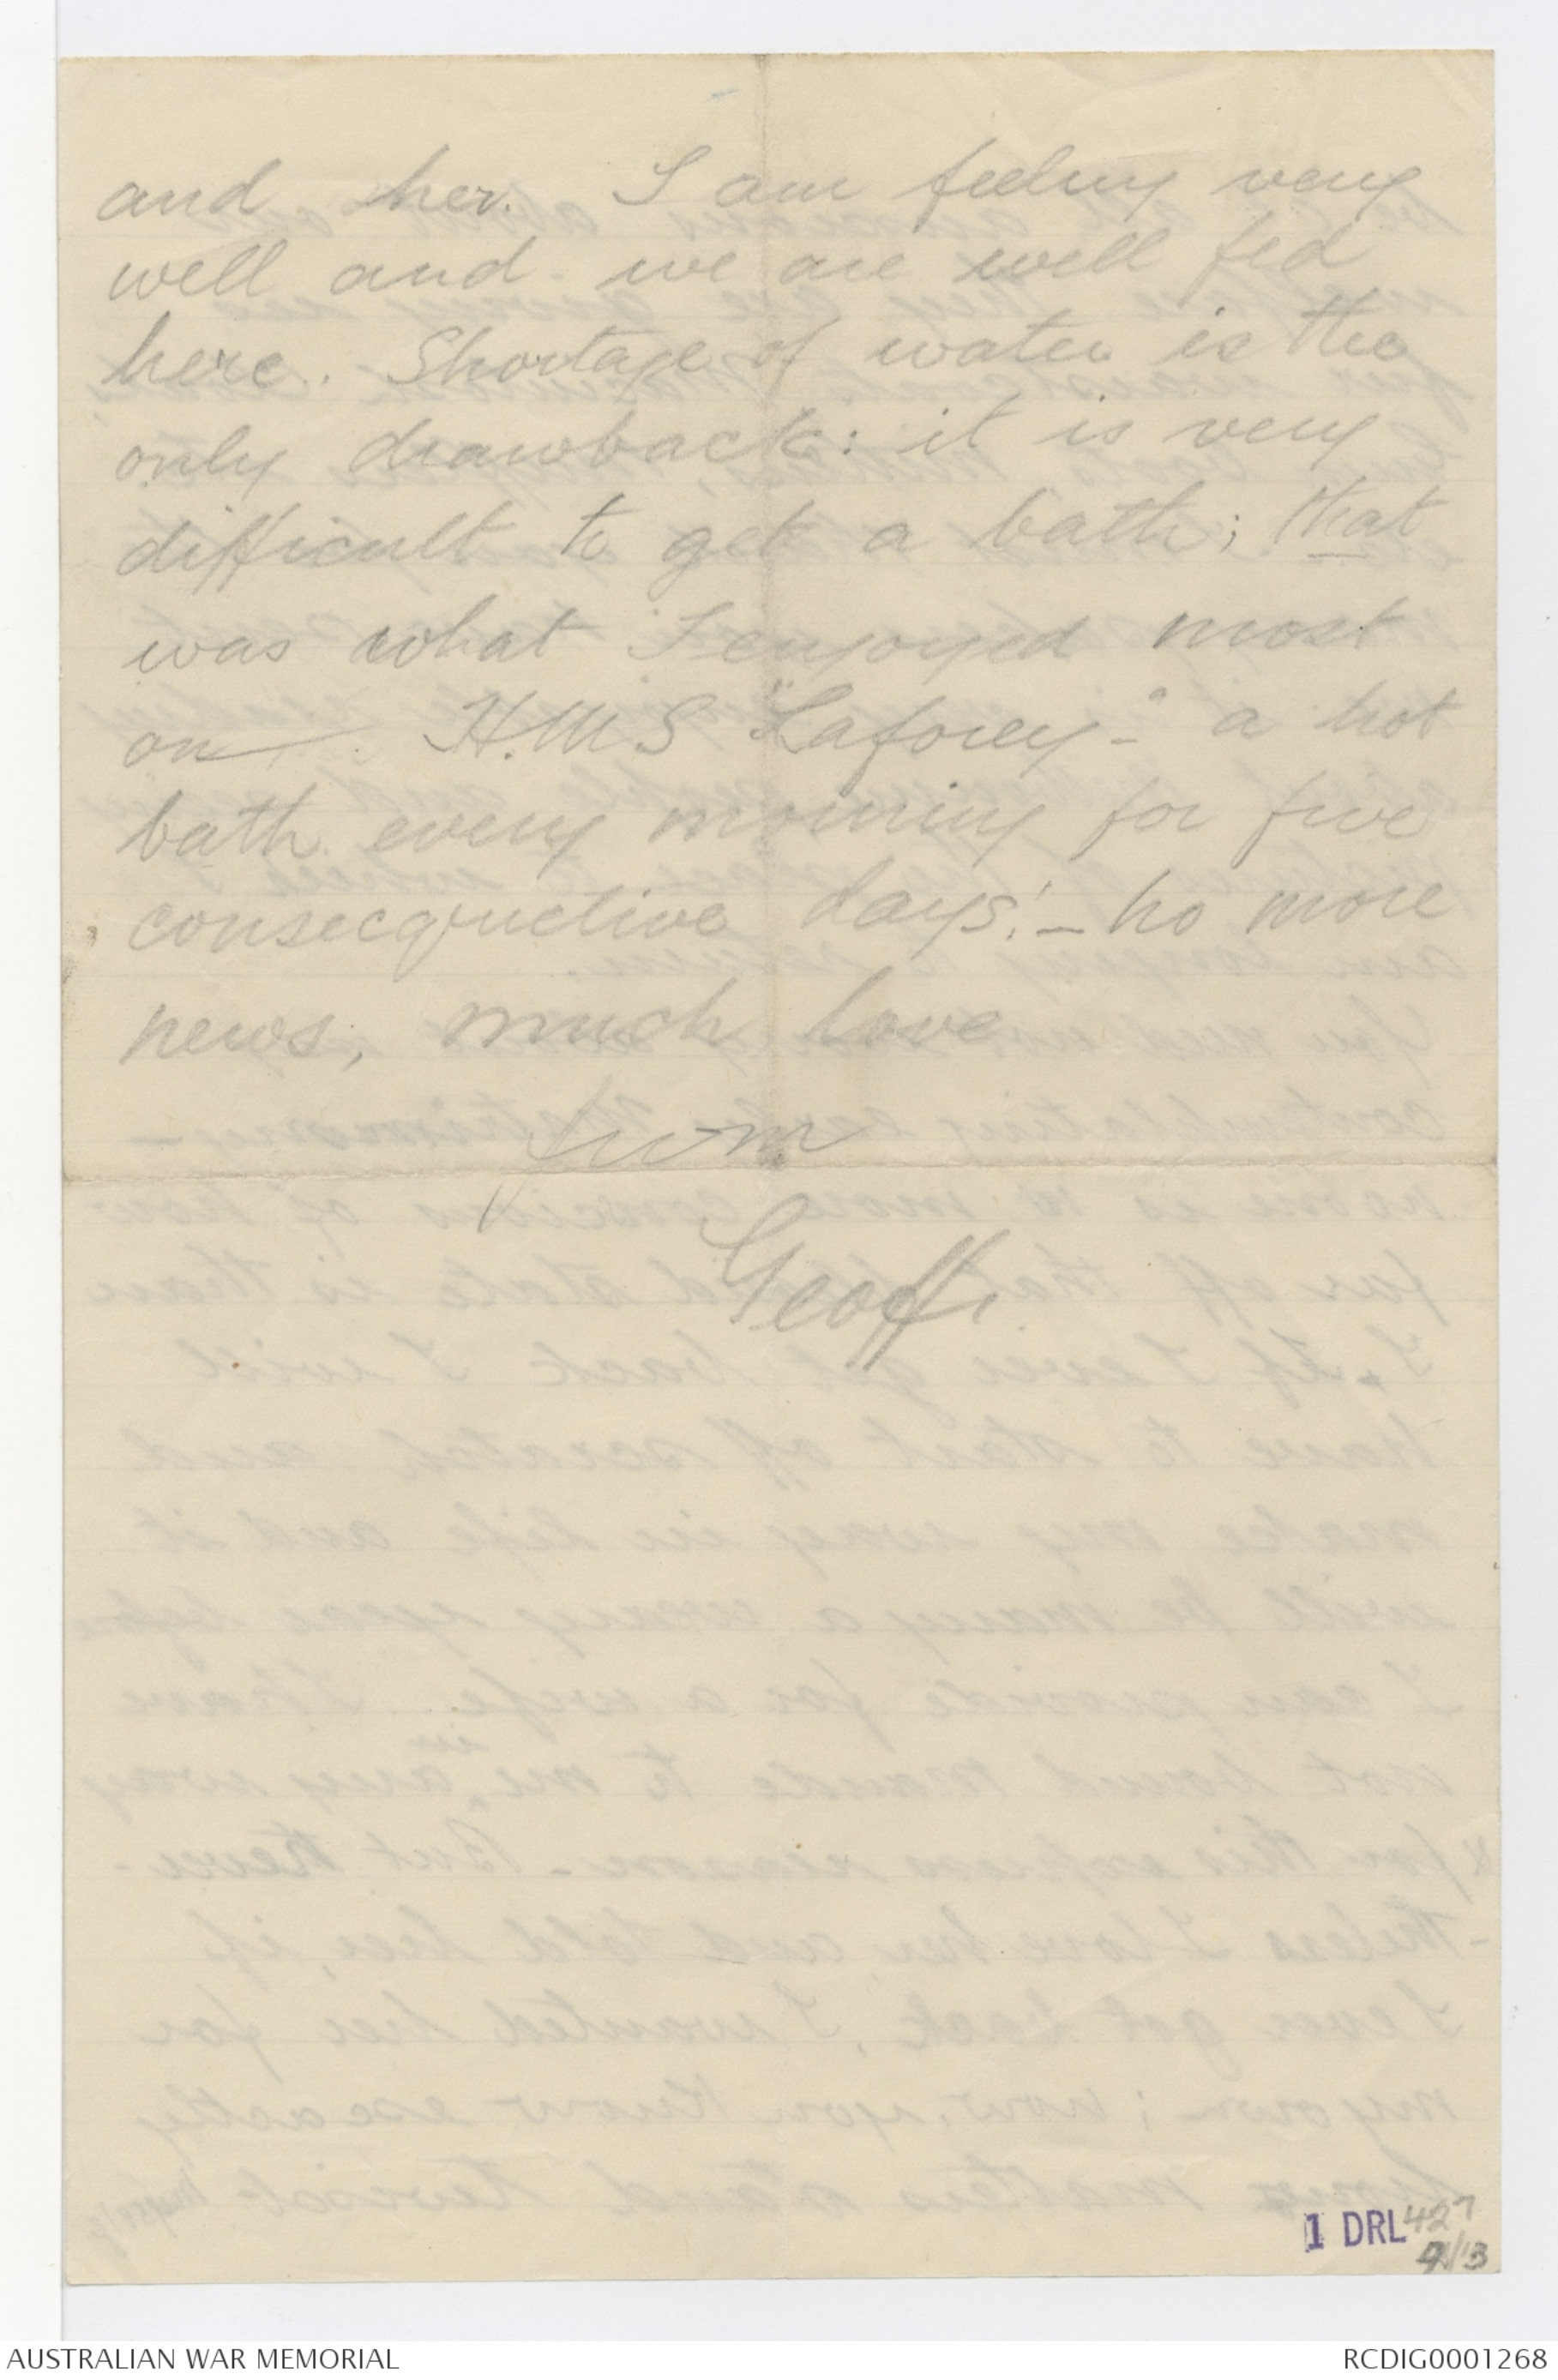 and her. I am feeling very
well and we are well fed
here. Shortage of water is the
only drawback: it is very
difficult to get a bath; that
was what I enjoyed most
on H.M S "Laforey" - a hot
bath every morning for five
consecqructive days! - no more
news, much love
from
Geoff.
1 DRL 427
AUSTRALIAN WAR MEMORIAL
RCDIG0001268